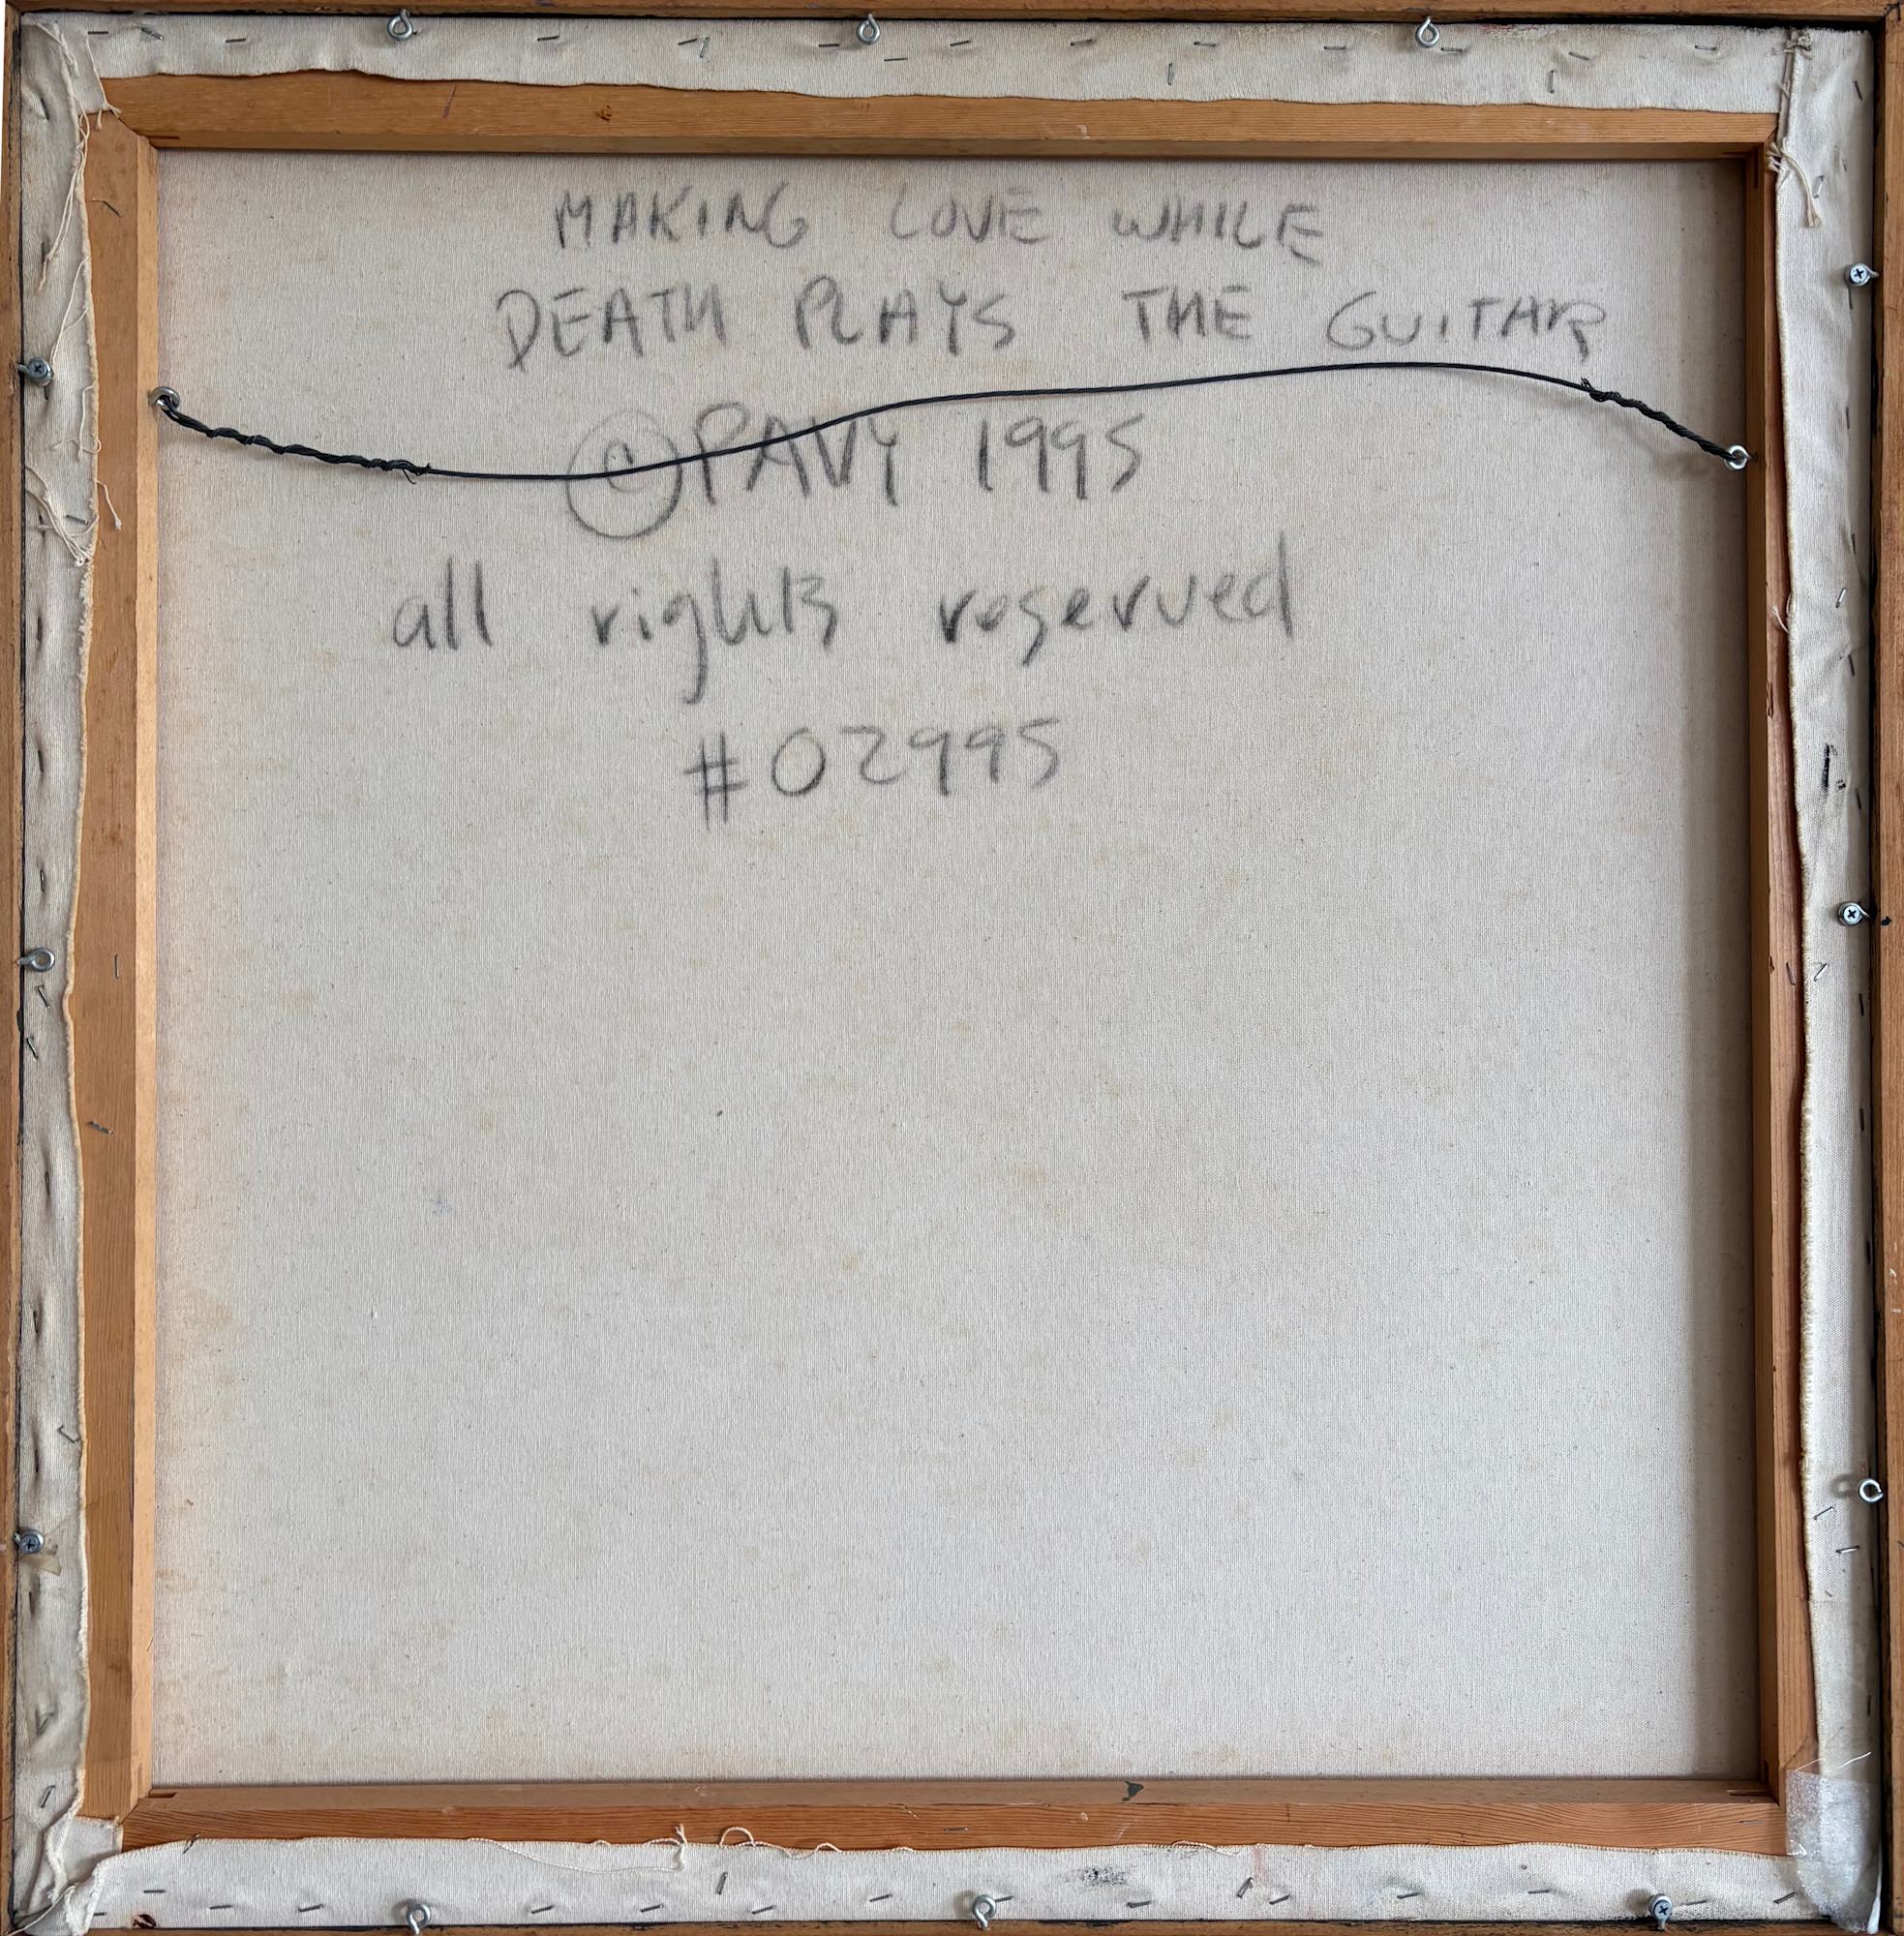 MAKING LOVE WHILE
DEATH PLAYS THE GUITAR
© PAVY 1995
all rights reserved
#02995